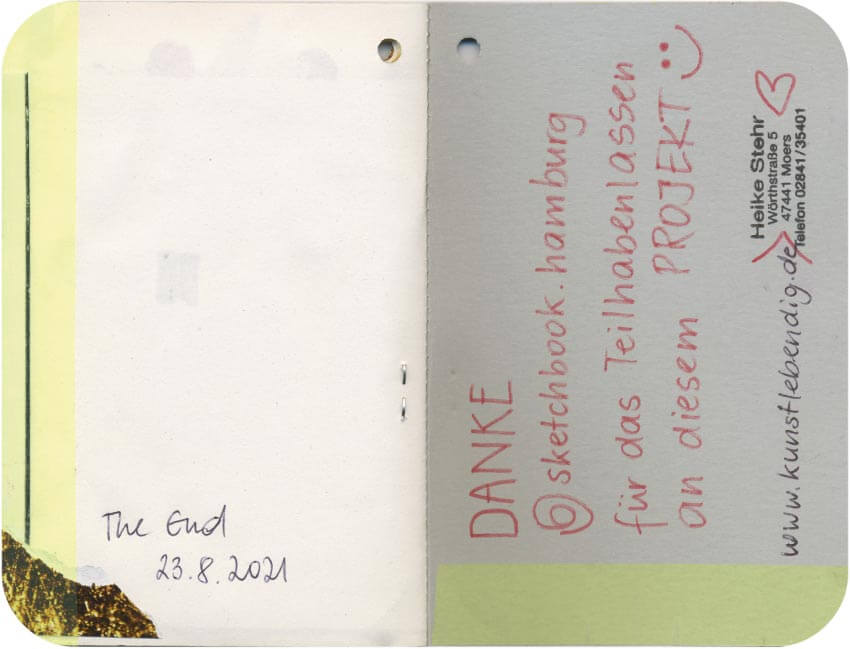 The End
23.8.2021
DANKE
@sketchbook.hamburg
für das Teilhabenlassen
an diesem PROJEKT :)
www.kunstlebendig.de
Heike Stehr
Wörthstraße 5
47441 Moers
Telefon 02841/35401